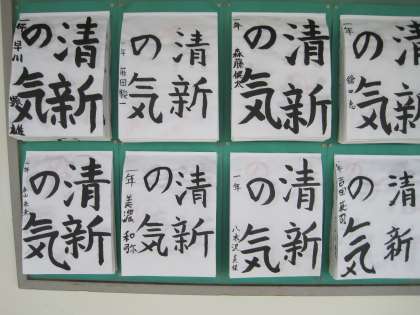 清新
の気
一年 早川
清新
の気
年 前田
清新
の気
一年 森藤
清新
の気
一年
清新
の気
一年
清新
の気
一年 美濃 和弥
清新
の気
一年 八木沢
清新
の気
一年 吉田